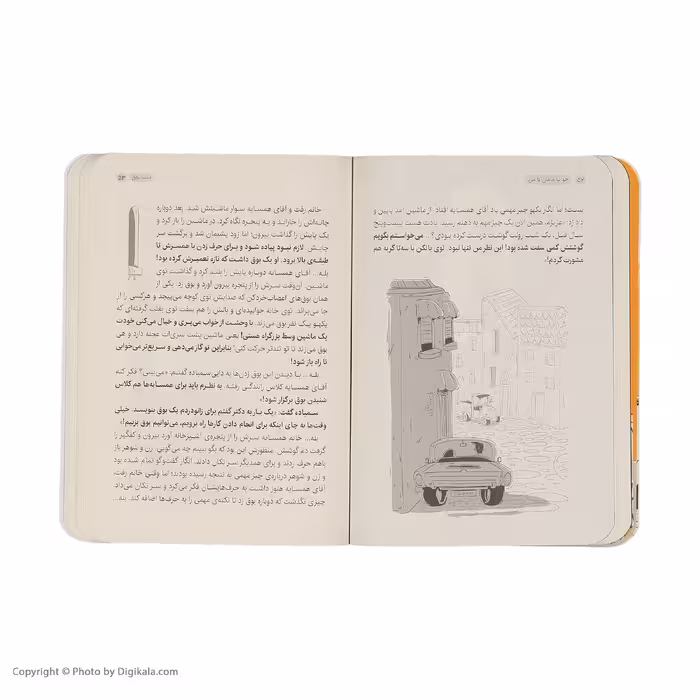 ۵۲
نیست؛ اما انگار یکهو چیز مهمی یاد آقای همسایه افتاد. از ماشین آمد پایین و
داد زد: «عزیزم، همین الان یک چیز مهم به ذهنم رسید. یادت هست بیست‌وپنج
سال قبل، یک شب رولت گوشت درست کرده بودی؟ ... می‌خواستم بگویم
گوشتش کمی سفت شده بود! این نظر من تنها نبود. توی بالکن با سه‌تا گربه هم
مشورت کردم!»
۵۳
خانم رفت و آقای همسایه سوار ماشینش شد. بعد دوباره
چانه‌اش را خاراند و به پنجره نگاه کرد. در ماشین را باز کرد و
یک پایش را گذاشت بیرون؛ اما زود پشیمان شد و برگشت سر
جایش. لازم نبود پیاده شود و برای حرف زدن با همسرش تا
طبقه‌ی بالا برود. او یک بوق داشت که تازه تعمیرش کرده بود!
بله... آقای همسایه دوباره پایش را بلند کرد و گذاشت توی
ماشین. آن‌وقت سرش را از پنجره آورد بیرون و بوق زد. یکی از
همان بوق‌های اعصاب‌خردکن که صدایش توی کوچه می‌پیچد و هرکسی را از
جا می‌پراند. توی خانه خوابیده‌ای و بالش را هم سفت توی بغلت گرفته‌ای که
یکهو یک نفر بوق می‌زند. با وحشت از خواب می‌پری و خیال می‌کنی خودت
یک ماشین وسط بزرگراه هستی! یعنی ماشین پشت سری‌ات عجله دارد و هی
بوق می‌زند تا تو تندتر حرکت کنی؛ بنابراین تو گاز می‌دهی و سریع‌تر می‌خوابی
تا راه باز شود!
بله... با دیدن این بوق زدن‌ها به دایی‌سمباده گفتم: «می‌بینی؟ فکر کنم
آقای همسایه کلاس رانندگی رفته. به نظرم باید برای همسایه‌ها هم کلاس
شنیدن بوق برگزار شود!»
سمباده گفت: «یک بار به دکتر گفتم برای زانودردم یک بوق بنویسد. خیلی
وقت‌ها به جای اینکه برای انجام دادن کارها راه برویم، می‌توانیم بوق بزنیم!»
بله... خانم همسایه سرش را از پنجره‌ی آشپزخانه آورد بیرون و کفگیر را
گرفت دم گوشش. منظورش این بود که بگو ببینم چه می‌گویی. زن و شوهر باز
باهم حرف زدند و برای همدیگر سر تکان دادند. انگار گفت‌وگو تمام شده بود
و زن و شوهر درباره‌ی چیز مهمی به نتیجه رسیده بودند؛ اما وقتی خانم رفت،
آقای همسایه هنوز داشت به حرف‌هایشان فکر می‌کرد و سر تکان می‌داد.
چیزی نگذشت که دوباره بوق زد تا نکته‌ی مهمی را به حرف‌ها اضافه کند. بله...
Copyright © Photo by Digikala.com